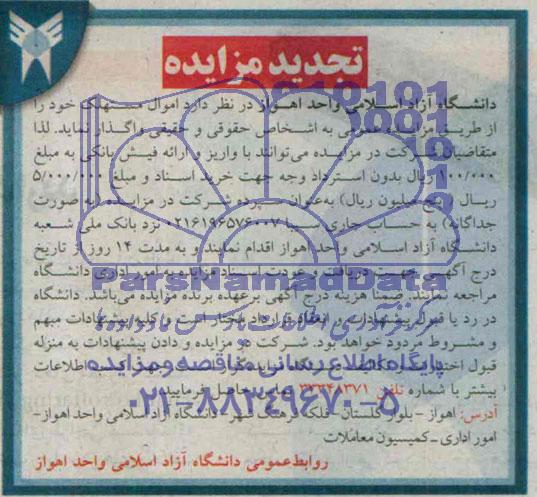 تجدید مزایده
دانشگاه آزاد اسلامی واحد اهواز در نظر دارد اموال مستهلک خود را
از طریق مزایده عمومی به اشخاص حقوقی و حقیقی واگذار نماید. لذا
متقاضیان شرکت در مزایده می‌توانند با واریز و ارائه فیش بانکی به مبلغ
۱۰۰/۰۰۰ ریال بدون استرداد وجه جهت خرید اسناد و مبلغ ۵/۰۰۰/۰۰۰
ریال (پنج میلیون ریال) به‌عنوان سپرده شرکت در مزایده (به صورت
جداگانه) به حساب جاری سیبا ۰۲۱۶۱۹۶۵۷۶۰۰۷ نزد بانک ملی شعبه
دانشگاه آزاد اسلامی واحد اهواز اقدام نمایند و به مدت ۱۴ روز از تاریخ
درج آگهی جهت دریافت و عودت اسناد مزایده به امور اداری دانشگاه
مراجعه نمایند. ضمنا هزینه درج آگهی برعهده برنده مزایده می‌باشد. دانشگاه
در رد یا قبول پیشنهادات و انعقاد قرارداد مختار است و کلیه پیشنهادات مبهم
و مشروط مردود خواهد بود. شرکت در مزایده و دادن پیشنهادات به منزله
قبول اطلاعات
بیشتر با شماره تلفن ۳۳۳۴۸۳۷۱ تماس حاصل فرمایید.
آدرس: اهواز - بلوار گلستان - فلکه فرهنگ شهر - دانشگاه آزاد اسلامی واحد اهواز -
امور اداری - کمیسیون معاملات
روابط عمومی دانشگاه آزاد اسلامی واحد اهواز
ParsNamadData
پایگاه اطلاع رسانی مناقصه و مزایده
۰۲۱-۸۸۳۴۹۶۷۰-۵